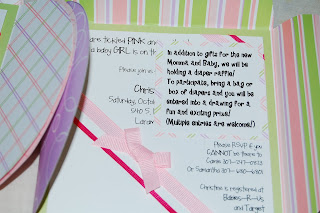 are tickled PINK an
a baby GIRL is on th
Please join us
Chris
Saturday, Octo
940 S.
Laram
In addition to gifts for the new
Momma and Baby, we will be
holding a diaper raffle!
To participate, bring a bag or
box of diapers and you will be
entered into a drawing for a
fun and exciting prize!
(Multiple entries are welcomed!)
Please RSVP if you
CANNOT be there to
Carrie 307-
Or Samantha 307-
Christina is registered at
Babies-R-Us
and Target